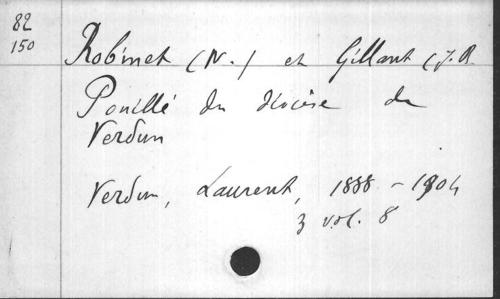 82
150
Robinet (N.) et Gillant (J.B.
Pouillé du diocèse de
Verdun
Verdun, Laurent, 1888 - 1904
3 vol. 8